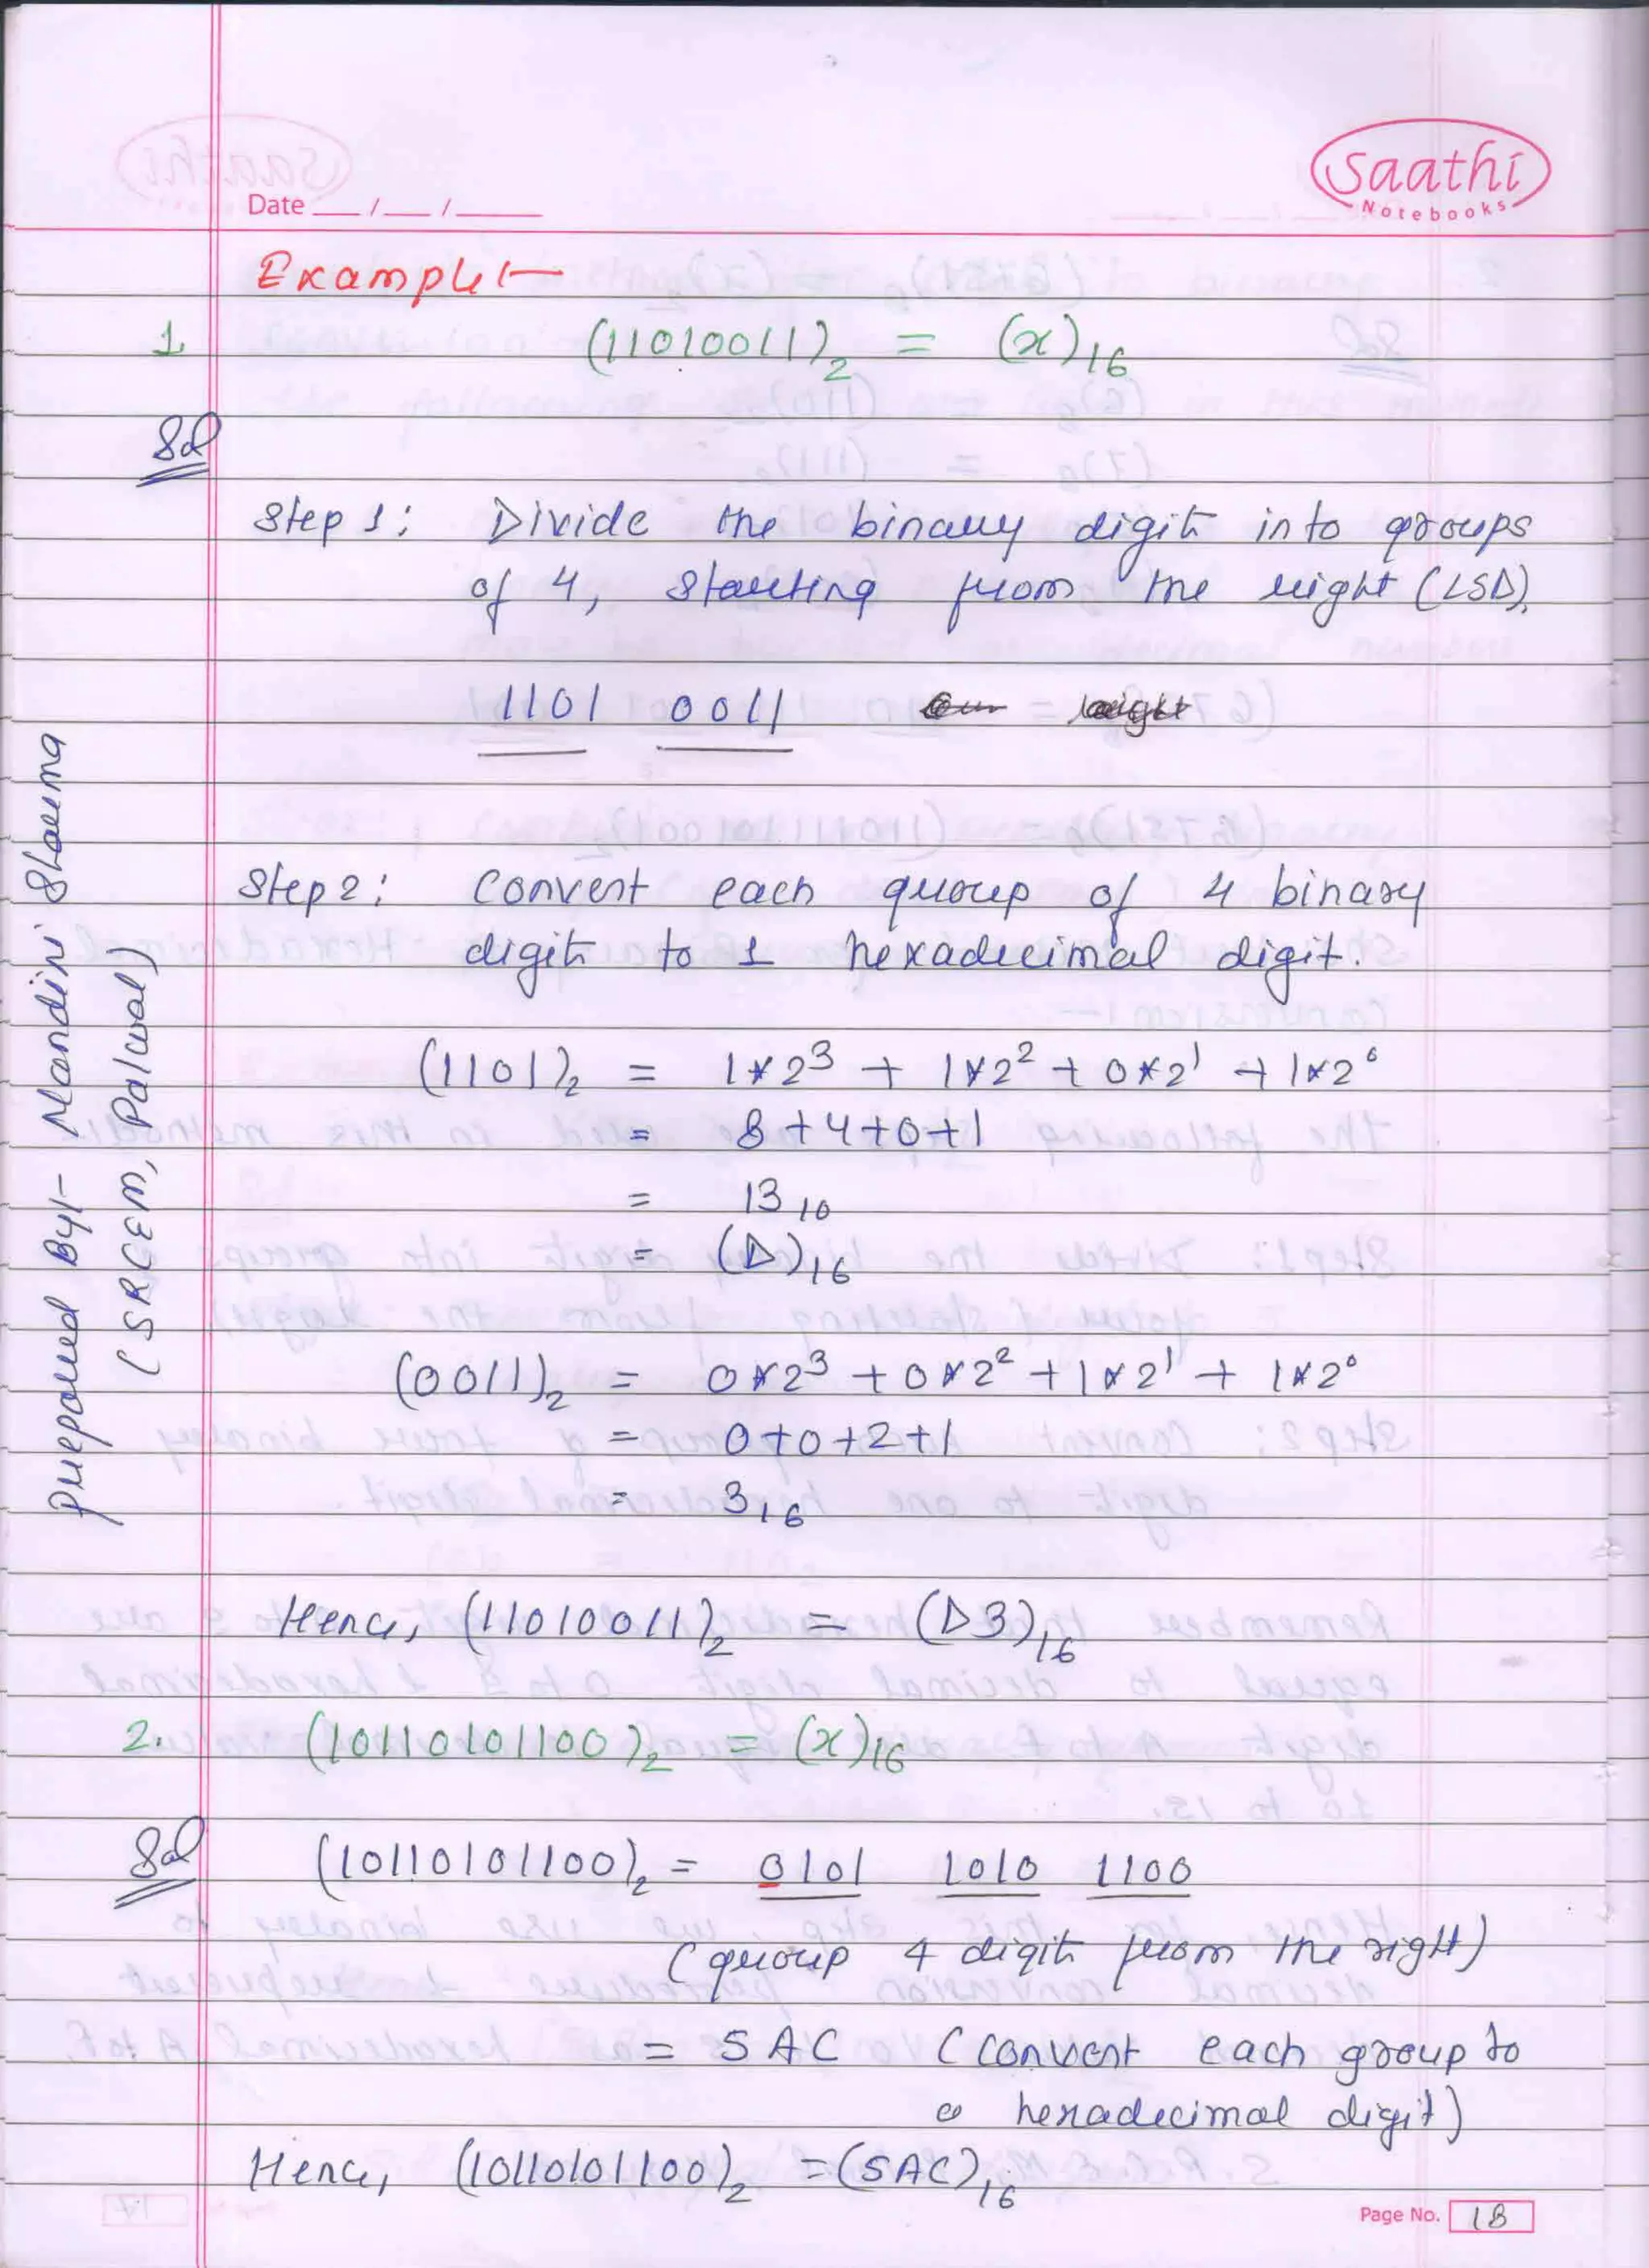 saathi
Notebooks
Date ___/___/_____
Example:-
1. (11010011)₂ = (x)₁₆
Sol
Step 1: Divide the binary digits into groups
of 4, starting from the right (LSD).
1101 0011
Step 2: Convert each group of 4 binary
digits to 1 hexadecimal digit.
(1101)₂ = 1*2³ + 1*2² + 0*2¹ + 1*2⁰
= 8+4+0+1
= 13₁₀
= (D)₁₆
(0011)₂ = 0*2³ + 0*2² + 1*2¹ + 1*2⁰
= 0+0+2+1
= 3₁₆
Hence, (11010011)₂ = (D3)₁₆
2. (10110101100)₂ = (x)₁₆
Sol (10110101100)₂ = 0101 1010 1100
(group 4 digits from the right)
= 5AC (convert each group to
a hexadecimal digit)
Hence, (10110101100)₂ = (5AC)₁₆
Page No. 18
Prepared By:- Nandini Sharma
(SRCEM, Palwal)